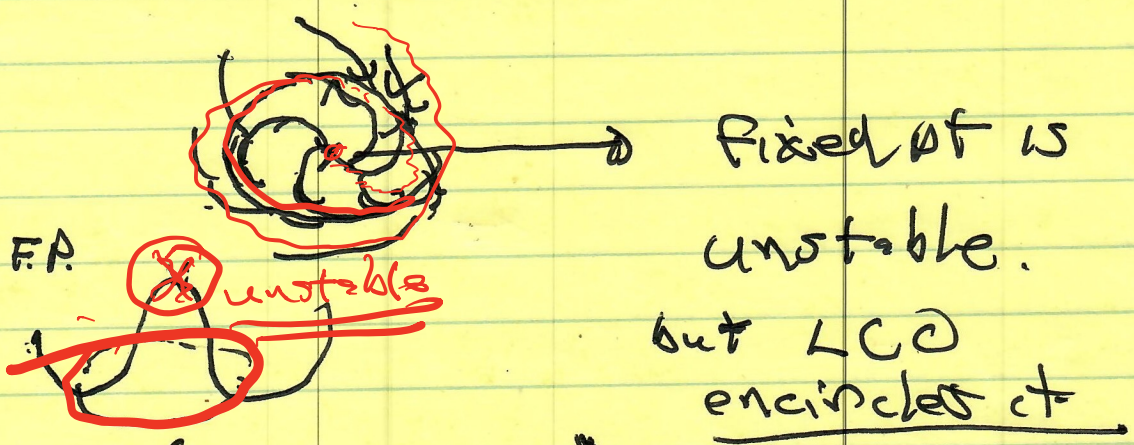 Fixed pt is
unstable.
but LCO
encircles it
F.P.
unstable